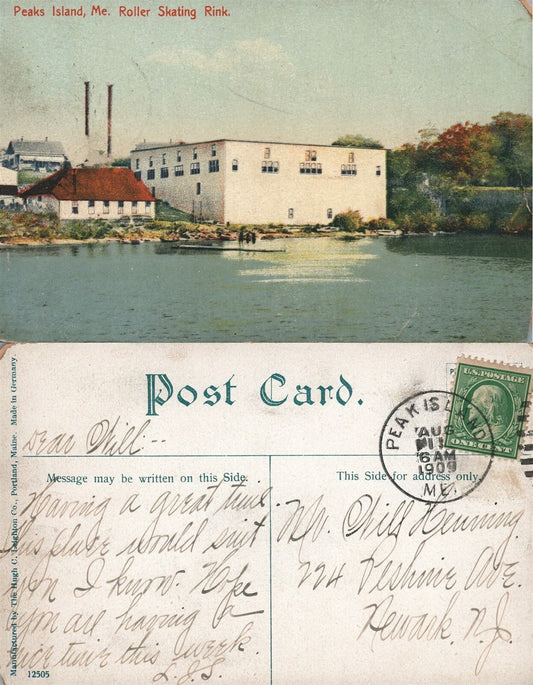 Peaks Island, Me. Roller Skating Rink.
Post Card.
PEAK ISLAND
AUG
11
6 AM
1909
ME.
U.S. POSTAGE
ONE CENT
Dear Will--
Message may be written on this Side.
This Side for address only.
Having a great time
this place would suit
you I know. Hope
you are having a
nice time this week.
L.G.S.
Mr. Will Henning
224 Peshine Ave.
Newark. N.J.
Manufactured by The Hugh C. Leighton Co., Portland, Maine. Made in Germany.
12505